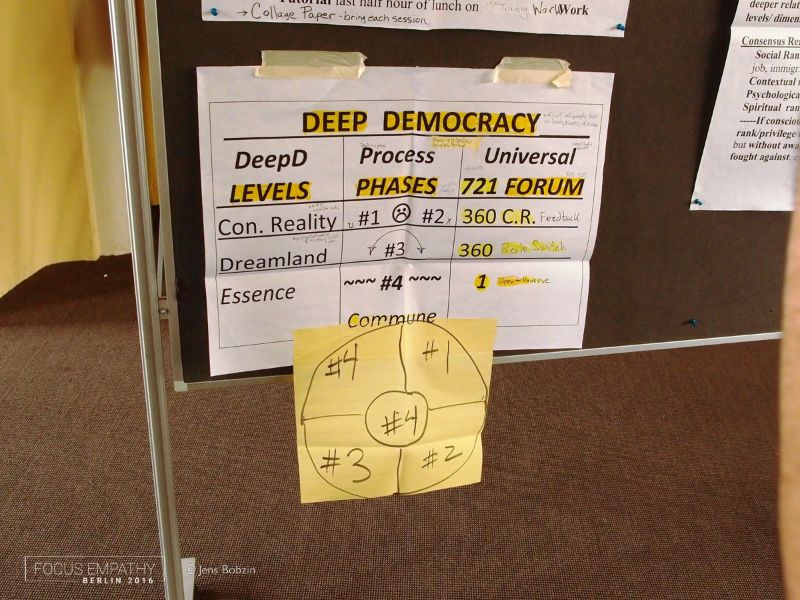 Tutorial last half hour of lunch on Work
→ Collage Paper - bring each session
deeper rela
levels/ dimen
Consensus Rea
Social Ran
job, immigr
Contextual
Psychologica
Spiritual ran
-----If consciou
rank/privilege
but without awa
fought against,
DEEP DEMOCRACY
DeepD Process Universal
LEVELS PHASES 721 FORUM
Con. Reality #1 ☹ #2 360 C.R. Feedback
Dreamland #3 360 Role Switch
Essence ~~~ #4 ~~~ 1
Commune
#4 #1
#4
#3 #2
FOCUS EMPATHY
BERLIN 2016
© Jens Bobzin